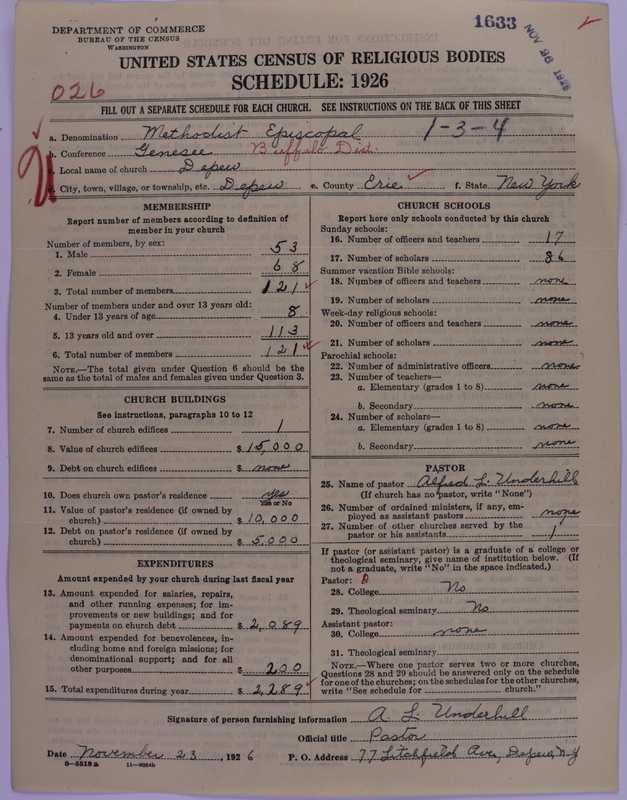 DEPARTMENT OF COMMERCE
BUREAU OF THE CENSUS
WASHINGTON
1633
NOV 26 1926
UNITED STATES CENSUS OF RELIGIOUS BODIES
SCHEDULE: 1926
026
FILL OUT A SEPARATE SCHEDULE FOR EACH CHURCH. SEE INSTRUCTIONS ON THE BACK OF THIS SHEET
a. Denomination Methodist Episcopal 1-3-4
b. Conference Genesee Buffalo Dist.
c. Local name of church Depew
d. City, town, village, or township, etc. Depew e. County Erie f. State New York
MEMBERSHIP
Report number of members according to definition of member in your church
Number of members, by sex:
1. Male 53
2. Female 68
3. Total number of members 121
Number of members under and over 13 years old:
4. Under 13 years of age 8
5. 13 years old and over 113
6. Total number of members 121
NOTE.—The total given under Question 6 should be the same as the total of males and females given under Question 3.
CHURCH BUILDINGS
See instructions, paragraphs 10 to 12
7. Number of church edifices 1
8. Value of church edifices $ 15,000
9. Debt on church edifices $ none
10. Does church own pastor's residence yes
Yes or No
11. Value of pastor's residence (if owned by church) $ 10,000
12. Debt on pastor's residence (if owned by church) $ 5,000
EXPENDITURES
Amount expended by your church during last fiscal year
13. Amount expended for salaries, repairs, and other running expenses; for improvements or new buildings; and for payments on church debt $ 2,089
14. Amount expended for benevolences, including home and foreign missions; for denominational support; and for all other purposes $ 200
15. Total expenditures during year $ 2,289
CHURCH SCHOOLS
Report here only schools conducted by this church
Sunday schools:
16. Number of officers and teachers 17
17. Number of scholars 86
Summer vacation Bible schools:
18. Number of officers and teachers none
19. Number of scholars none
Week-day religious schools:
20. Number of officers and teachers none
21. Number of scholars none
Parochial schools:
22. Number of administrative officers none
23. Number of teachers—
a. Elementary (grades 1 to 8) none
b. Secondary none
24. Number of scholars—
a. Elementary (grades 1 to 8) none
b. Secondary none
PASTOR
25. Name of pastor Alfred L. Underhill
(If church has no pastor, write "None")
26. Number of ordained ministers, if any, employed as assistant pastors none
27. Number of other churches served by the pastor or his assistants 1
If pastor (or assistant pastor) is a graduate of a college or theological seminary, give name of institution below. (If not a graduate, write "No" in the space indicated.)
Pastor: 0
28. College No
29. Theological seminary No
Assistant pastor:
30. College none
31. Theological seminary
NOTE.—Where one pastor serves two or more churches, Questions 28 and 29 should be answered only on the schedule for one of the churches; on the schedules for the other churches, write "See schedule for church."
Signature of person furnishing information A L Underhill
Official title Pastor
Date November 23, 1926 P. O. Address 77 Litchfield Ave, Depew, N.Y
8—5518a 11—9554b